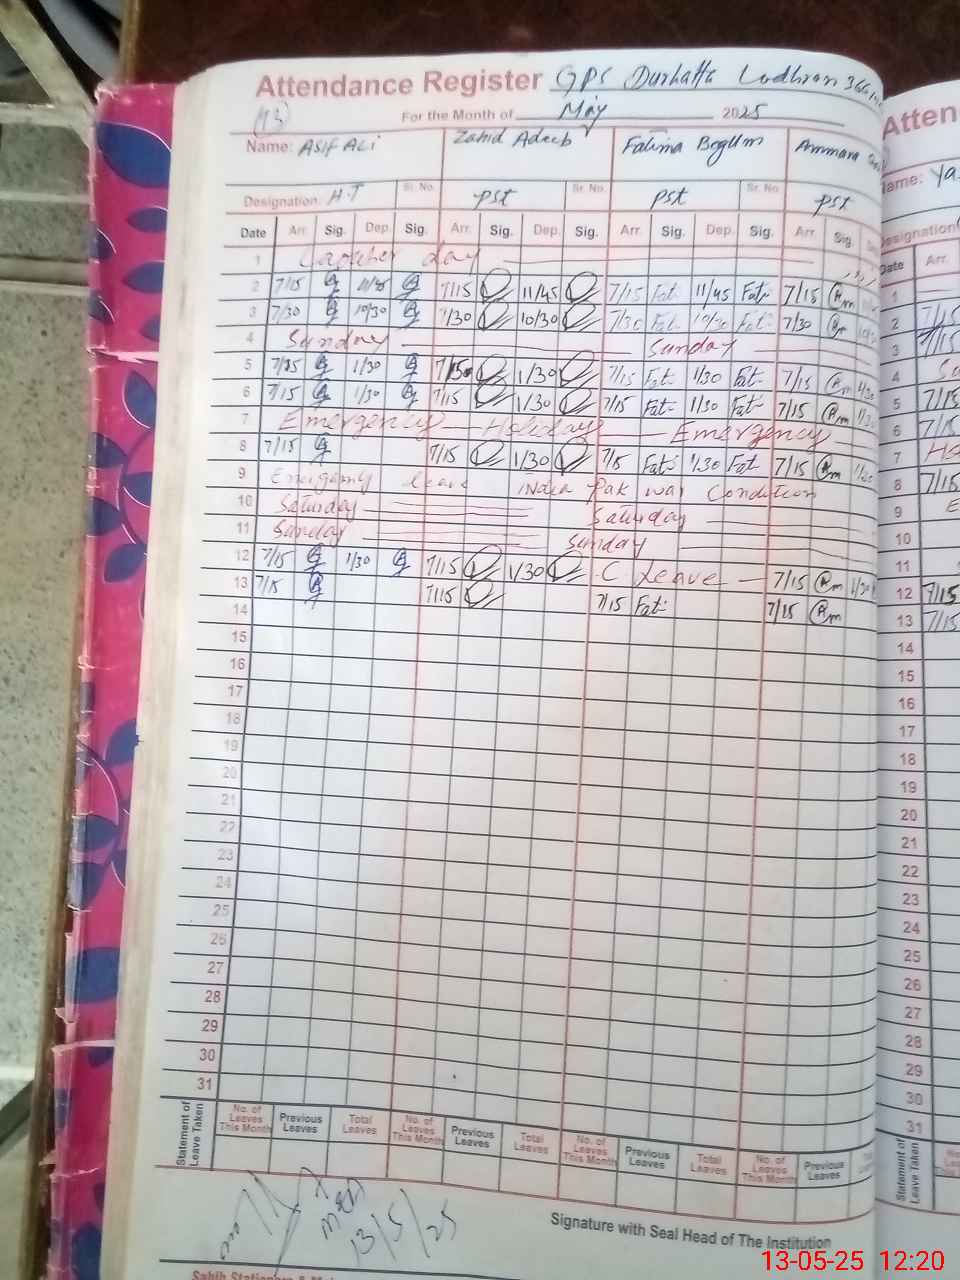 Attendance Register GPS Durhatta Lodhran
For the Month of May 2025
Name: ASIF ALi Zahid Adeeb Fatima Begum Ammara
Designation: H.T Sr. No. pst Sr. No. pst Sr. No. pst
Date Arr. Sig. Dep. Sig. Arr. Sig. Dep. Sig. Arr. Sig. Dep. Sig. Arr. Sig.
1 day
2 7/15 7/15 11/45 7/15 Fati 11/45 Fati 7/15 Am
3 7/30 10/30 7/30 10/30 7/30 Fati 10/30 Fati 7/30
4 Sunday Sunday
5 7/15 1/30 7/15 1/30 7/15 Fati 1/30 Fati 7/15 Am 1/30
6 7/15 1/30 7/15 1/30 7/15 Fati 1/30 Fati 7/15 Am 1/30
7 Emergency Holiday Emergency
8 7/15 7/15 1/30 7/15 Fati 1/30 Fati 7/15 Am
9 Emergency leave India Pak war Condition
10 Saturday Saturday
11 Sunday Sunday
12 7/15 1/30 7/15 1/30 C. Leave 7/15 Am 1/30
13 7/15 7/15 7/15 Fati 7/15 Am
14
15
16
17
18
19
20
21
22
23
24
25
26
27
28
29
30
31
Statement of Leave Taken No. of Leaves This Month Previous Leaves Total Leaves No. of Leaves This Month Previous Leaves Total Leaves No. of Leaves This Month Previous Leaves Total Leaves No. of Leaves This Month Previous Leaves
13/5/25
Signature with Seal Head of The Institution
Atten
Name: Ya
Designation
Date Arr.
1
2 7/15
3 7/15
4
5 7/15
6 7/15
7
8 7/15
9
10
11
12 7/15
13 7/15
14
15
16
17
18
19
20
21
22
23
24
25
26
27
28
29
30
31
Statement of Leave Taken
13-05-25 12:20